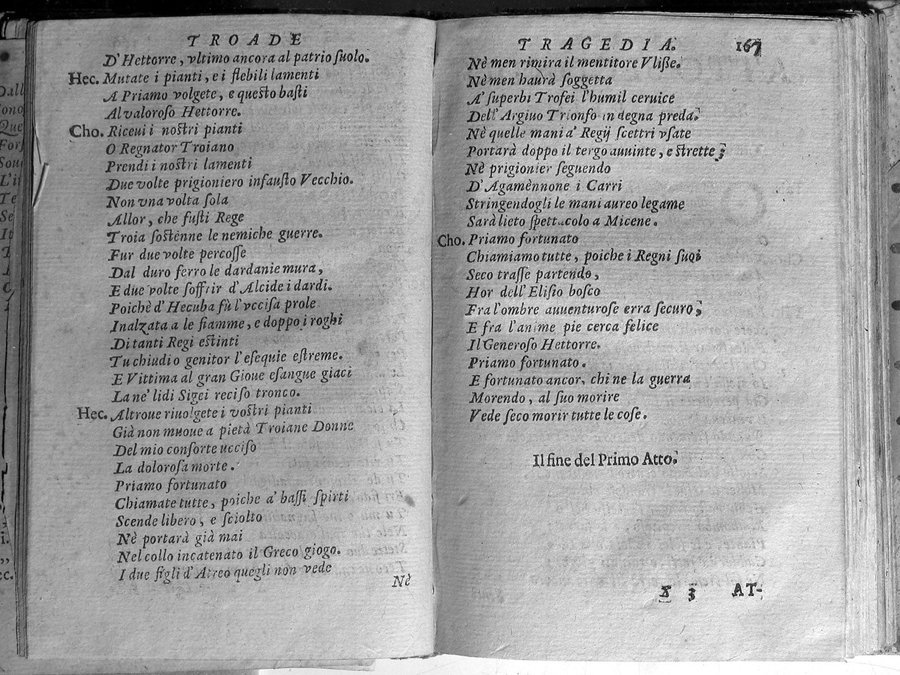 TROADE
D'Hettorre, vltimo ancora al patrio ſuolo.
Hec. Mutate i pianti, e i flebili lamenti
A Priamo volgete, e questo basti
Al valoroſo Hettorre.
Cho. Riceui i nostri pianti
O Regnator Troiano
Prendi i nostri lamenti
Due volte prigioniero infausto Vecchio.
Non vna volta ſola
Allor, che fusti Rege
Troia sostenne le nemiche guerre.
Fur due volte percoſſe
Dal duro ferro le dardanie mura,
E due volte ſoffrir d'Alcide i dardi.
Poichè d'Hecuba fù l'vcciſa prole
Inalzata a le fiamme, e doppo i roghi
Di tanti Regi estinti
Tu chiudi o genitor l'eſequie estreme.
E Vittima al gran Gioue eſangue giaci
La ne' lidi Sigei reciſo tronco.
Hec. Altroue riuolgete i vostri pianti
Già non muoue a pietà Troiane Donne
Del mio conſorte ucciſo
La doloroſa morte.
Priamo fortunato
Chiamate tutte, poiche a' baſſi ſpirti
Scende libero, e ſciolto
Nè portarà già mai
Nel collo incatenato il Greco giogo.
I due figli d'Atreo quegli non vede
Nè
TRAGEDIA. 167
Nè men rimira il mentitore Vliße.
Nè men haurà ſoggetta
A' ſuperbi Trofei l'humil ceruice
Dell'Argiuo Trionfo in degna preda.
Nè quelle mani a' Regij ſcettri vſate
Portarà doppo il tergo auuinte, e strette;
Nè prigionier ſeguendo
D'Agamènnone i Carri
Stringendogli le mani aureo legame
Sarà lieto ſpettacolo a Micene.
Cho. Priamo fortunato
Chiamiamo tutte, poiche i Regni ſuoi
Seco traſſe partendo,
Hor dell'Eliſio boſco
Fra l'ombre auuenturoſe erra ſecuro,
E fra l'anime pie cerca felice
Il Generoſo Hettorre.
Priamo fortunato.
E fortunato ancor, chi ne la guerra
Morendo, al ſuo morire
Vede ſeco morir tutte le coſe.
Il fine del Primo Atto.
X 3 AT-